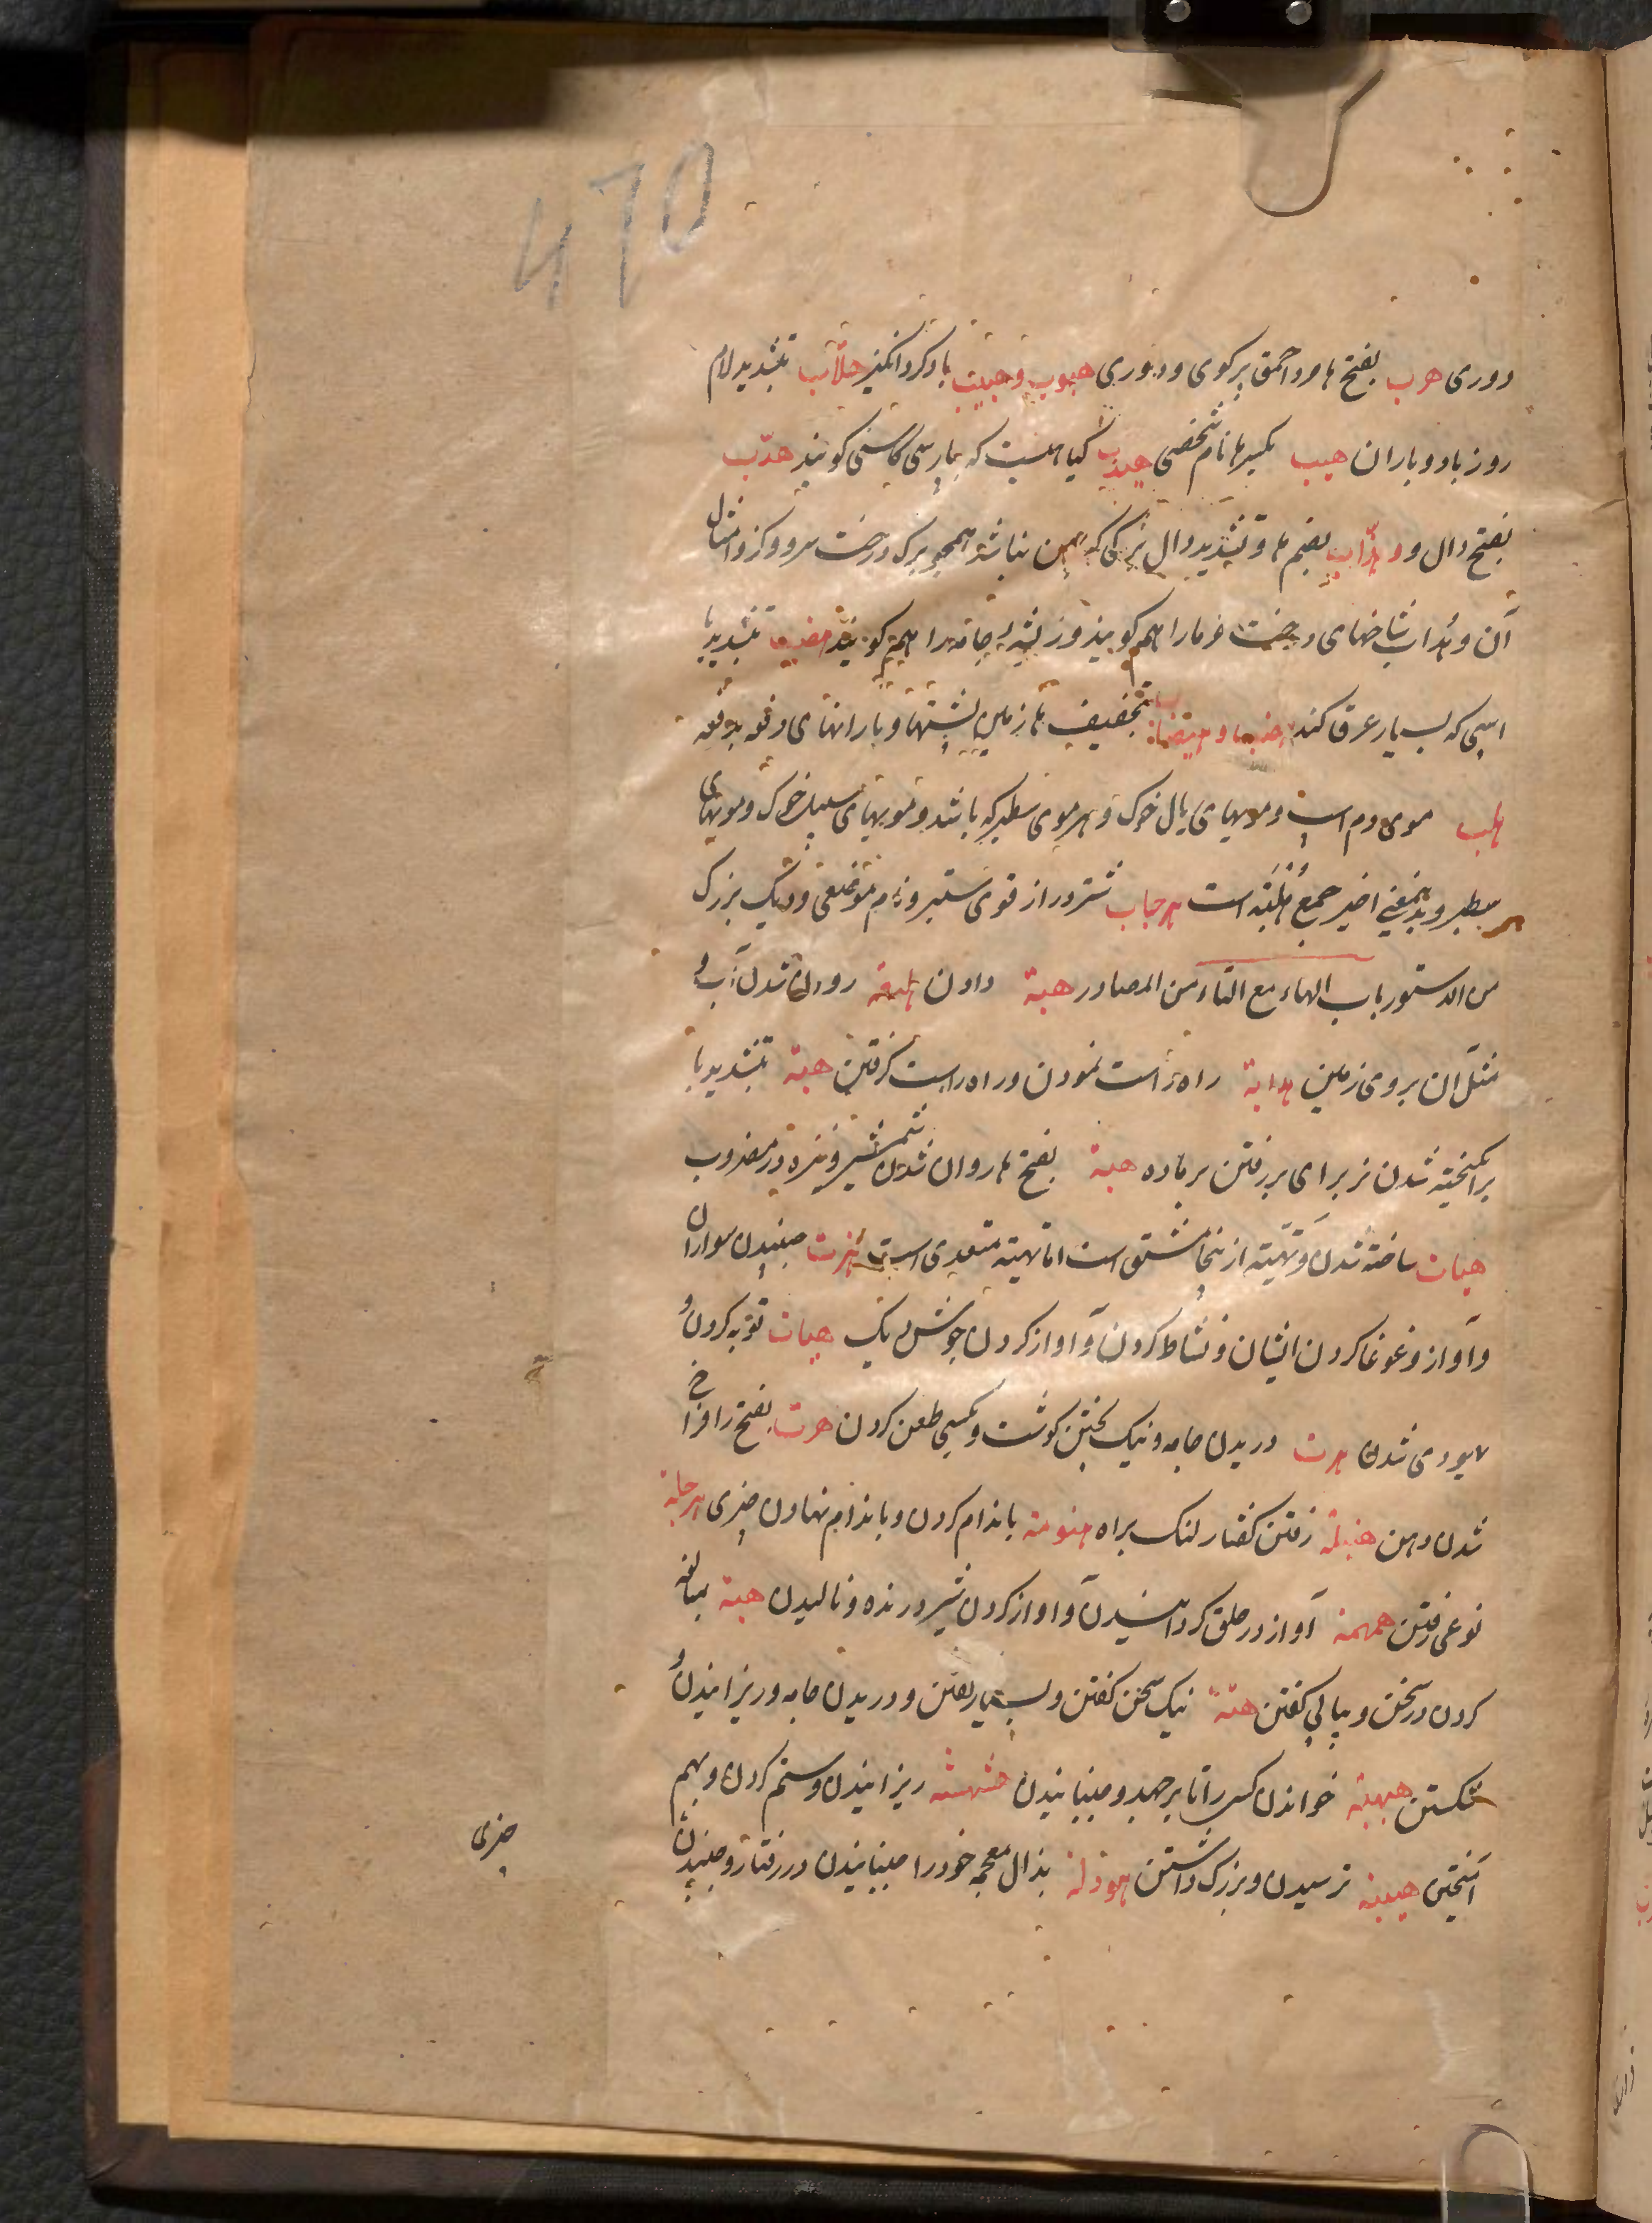 470
دوری هرب بفتح ها مرد احمق پر کوی و دوری هبوب و هبیب باد کرد انکیز هلّاب بتشدید لام
روز باد و باران هیب بکسر ها نام شخصی هندب کیاهیست که بپارسی کاسنی کویند هدّب
بفتح دال و هدّاب بضم ها و تشدید دال برکی که پهن نباشد همچو برک درخت سرو و کز و امثال
آن و هدّاب شاخهای درخت خرما را هم کویند و ریشهٔ جامه را هم کویند هضب بتشدید با
اسپی که بسیار عرق کند هضب و هضاب بتخفیف ها زمین پشتها و بارانهای دفعه بدفعه
هلب موی دم اسپ و مویهای یال خوک و هر موی سطبر که باشد و مویهای سبیل خوک و مویهای
سطبر و بدین معنی اخیر جمع هُلْبَة است هرجاب شتر دراز قوی ستبر و نام موضعی و دیک بزرک
من الدستور باب الهاء مع التاء من المصادر هبة دادن هیعة روان شدن آب و
مثل آن بروی زمین هدایة راه راست نمودن و راه راست کرفتن هبة بتشدید با
برانکیخته شدن نر برای بر رفتن بر ماده هبة بفتح ها روان شدن شمشیر و نیزه در مضروب
هیات ساخته شدن و تهیئه ازینجا مشتق است اما تهیئه متعدی است هزت جنبیدن سواران
و آواز و غوغا کردن ایشان و نشاط کردن و آواز کردن جوشش دیک هیات توبه کردن و
یهودی شدن هرت دریدن جامه و نیک پختن کوشت و بکسی طعن کردن هرت بفتح را فراخ
شدن دهن هنبلة رفتن کفتار لنک براه هنومة باندام کردن و باندام نهادن چیزی هرجلة
نوعی رفتن همهمة آواز در حلق کردانیدن و آواز کردن شیر درنده و نالیدن هبة مبالغه
کردن در سخن و پیاپی کفتن هتة نیک سخن کفتن و بسیار کفتن و دریدن جامه و ریزانیدن و
شکستن هبهبة خواندن کسی را تا برجهد و جنبانیدن هثهثة ریزانیدن و ستم کردن و بهم
آمیختن هیبة ترسیدن و بزرک داشتن هوذلة بذال معجمه خود را جنبانیدن در رفتار و جنبیدن
چیزی